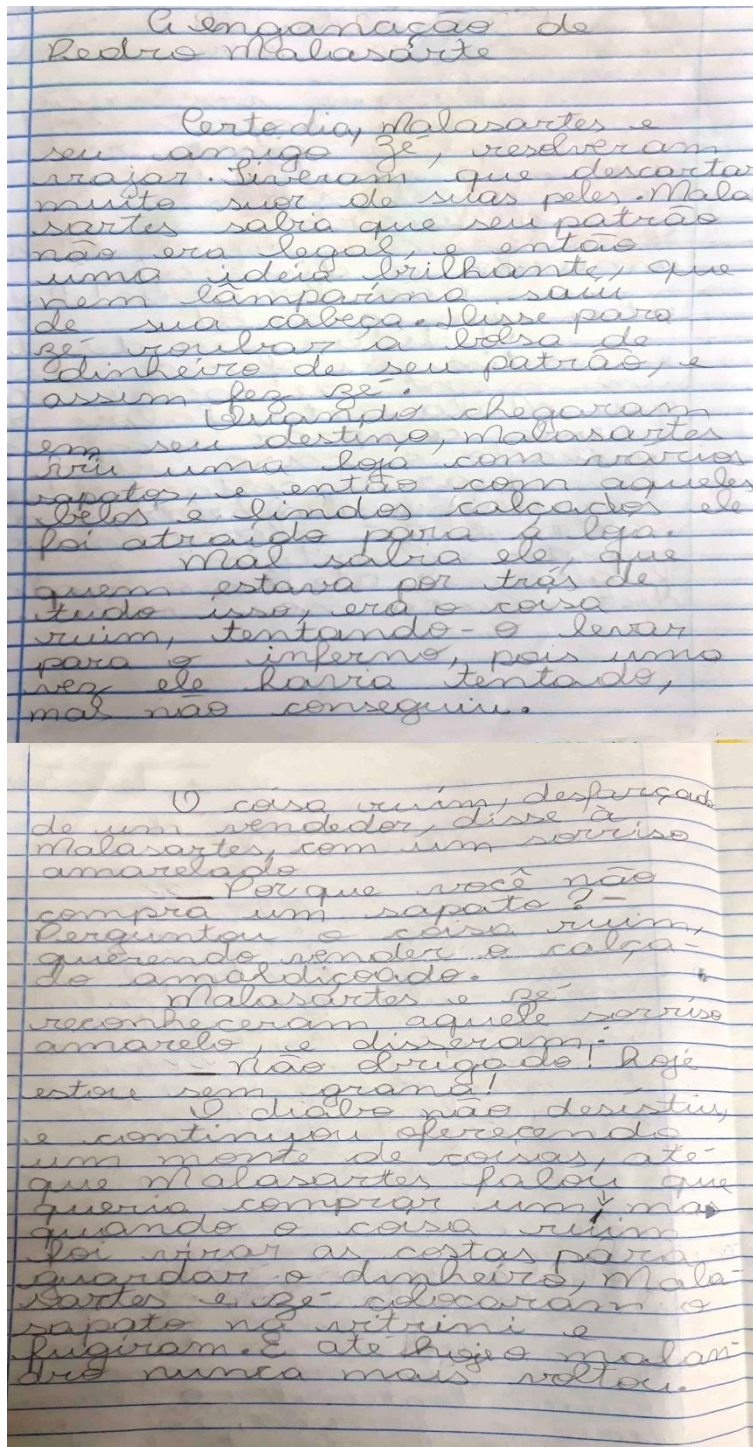 A enganação de
Pedro Malasarte
Certo dia, Malasartes e
seu amigo Zé, resolveram
viajar. Tiveram que descartar
muito suor de suas peles. Mala
sartes sabia que seu patrão
não era legal, e então
uma idéia brilhante, que
nem lâmparina saiu
de sua cabeça. Disse para
zé roubar a bolsa de
dinheiro de seu patrão, e
assim fez zé.
Quando chegaram
em seu destino, Malasartes
viu uma loja com vários
sapatos, e então com aqueles
belos e lindos calçados ele
foi atraído para a loja.
Mal sabia ele, que
quem estava por trás de
tudo isso, era o coisa
ruim, tentando-o levar
para o inferno, pois uma
vez ele havia tentado,
mas não conseguiu.
O coisa ruim, desfarçado
de um vendedor, disse à
Malasartes, com um sorriso
amarelado
— Porque você não
compra um sapato? -
Perguntou o coisa ruim,
querendo vender o calça-
do amaldiçoado.
Malasartes e zé
reconheceram aquele sorriso
amarelo, e disseram:
— Não obrigado! hoje
estou sem grana!
O diabo não desistiu,
e continuou oferecendo
um monte de coisas, até
que Malasartes falou que
queria comprar um, mas
quando o coisa ruim
foi virar as costas para
guardar o dinheiro, Mala-
sartes e zé colocaram o
sapato na vitrini e
fugiram. E até hoje o malan-
dro nunca mais voltou.